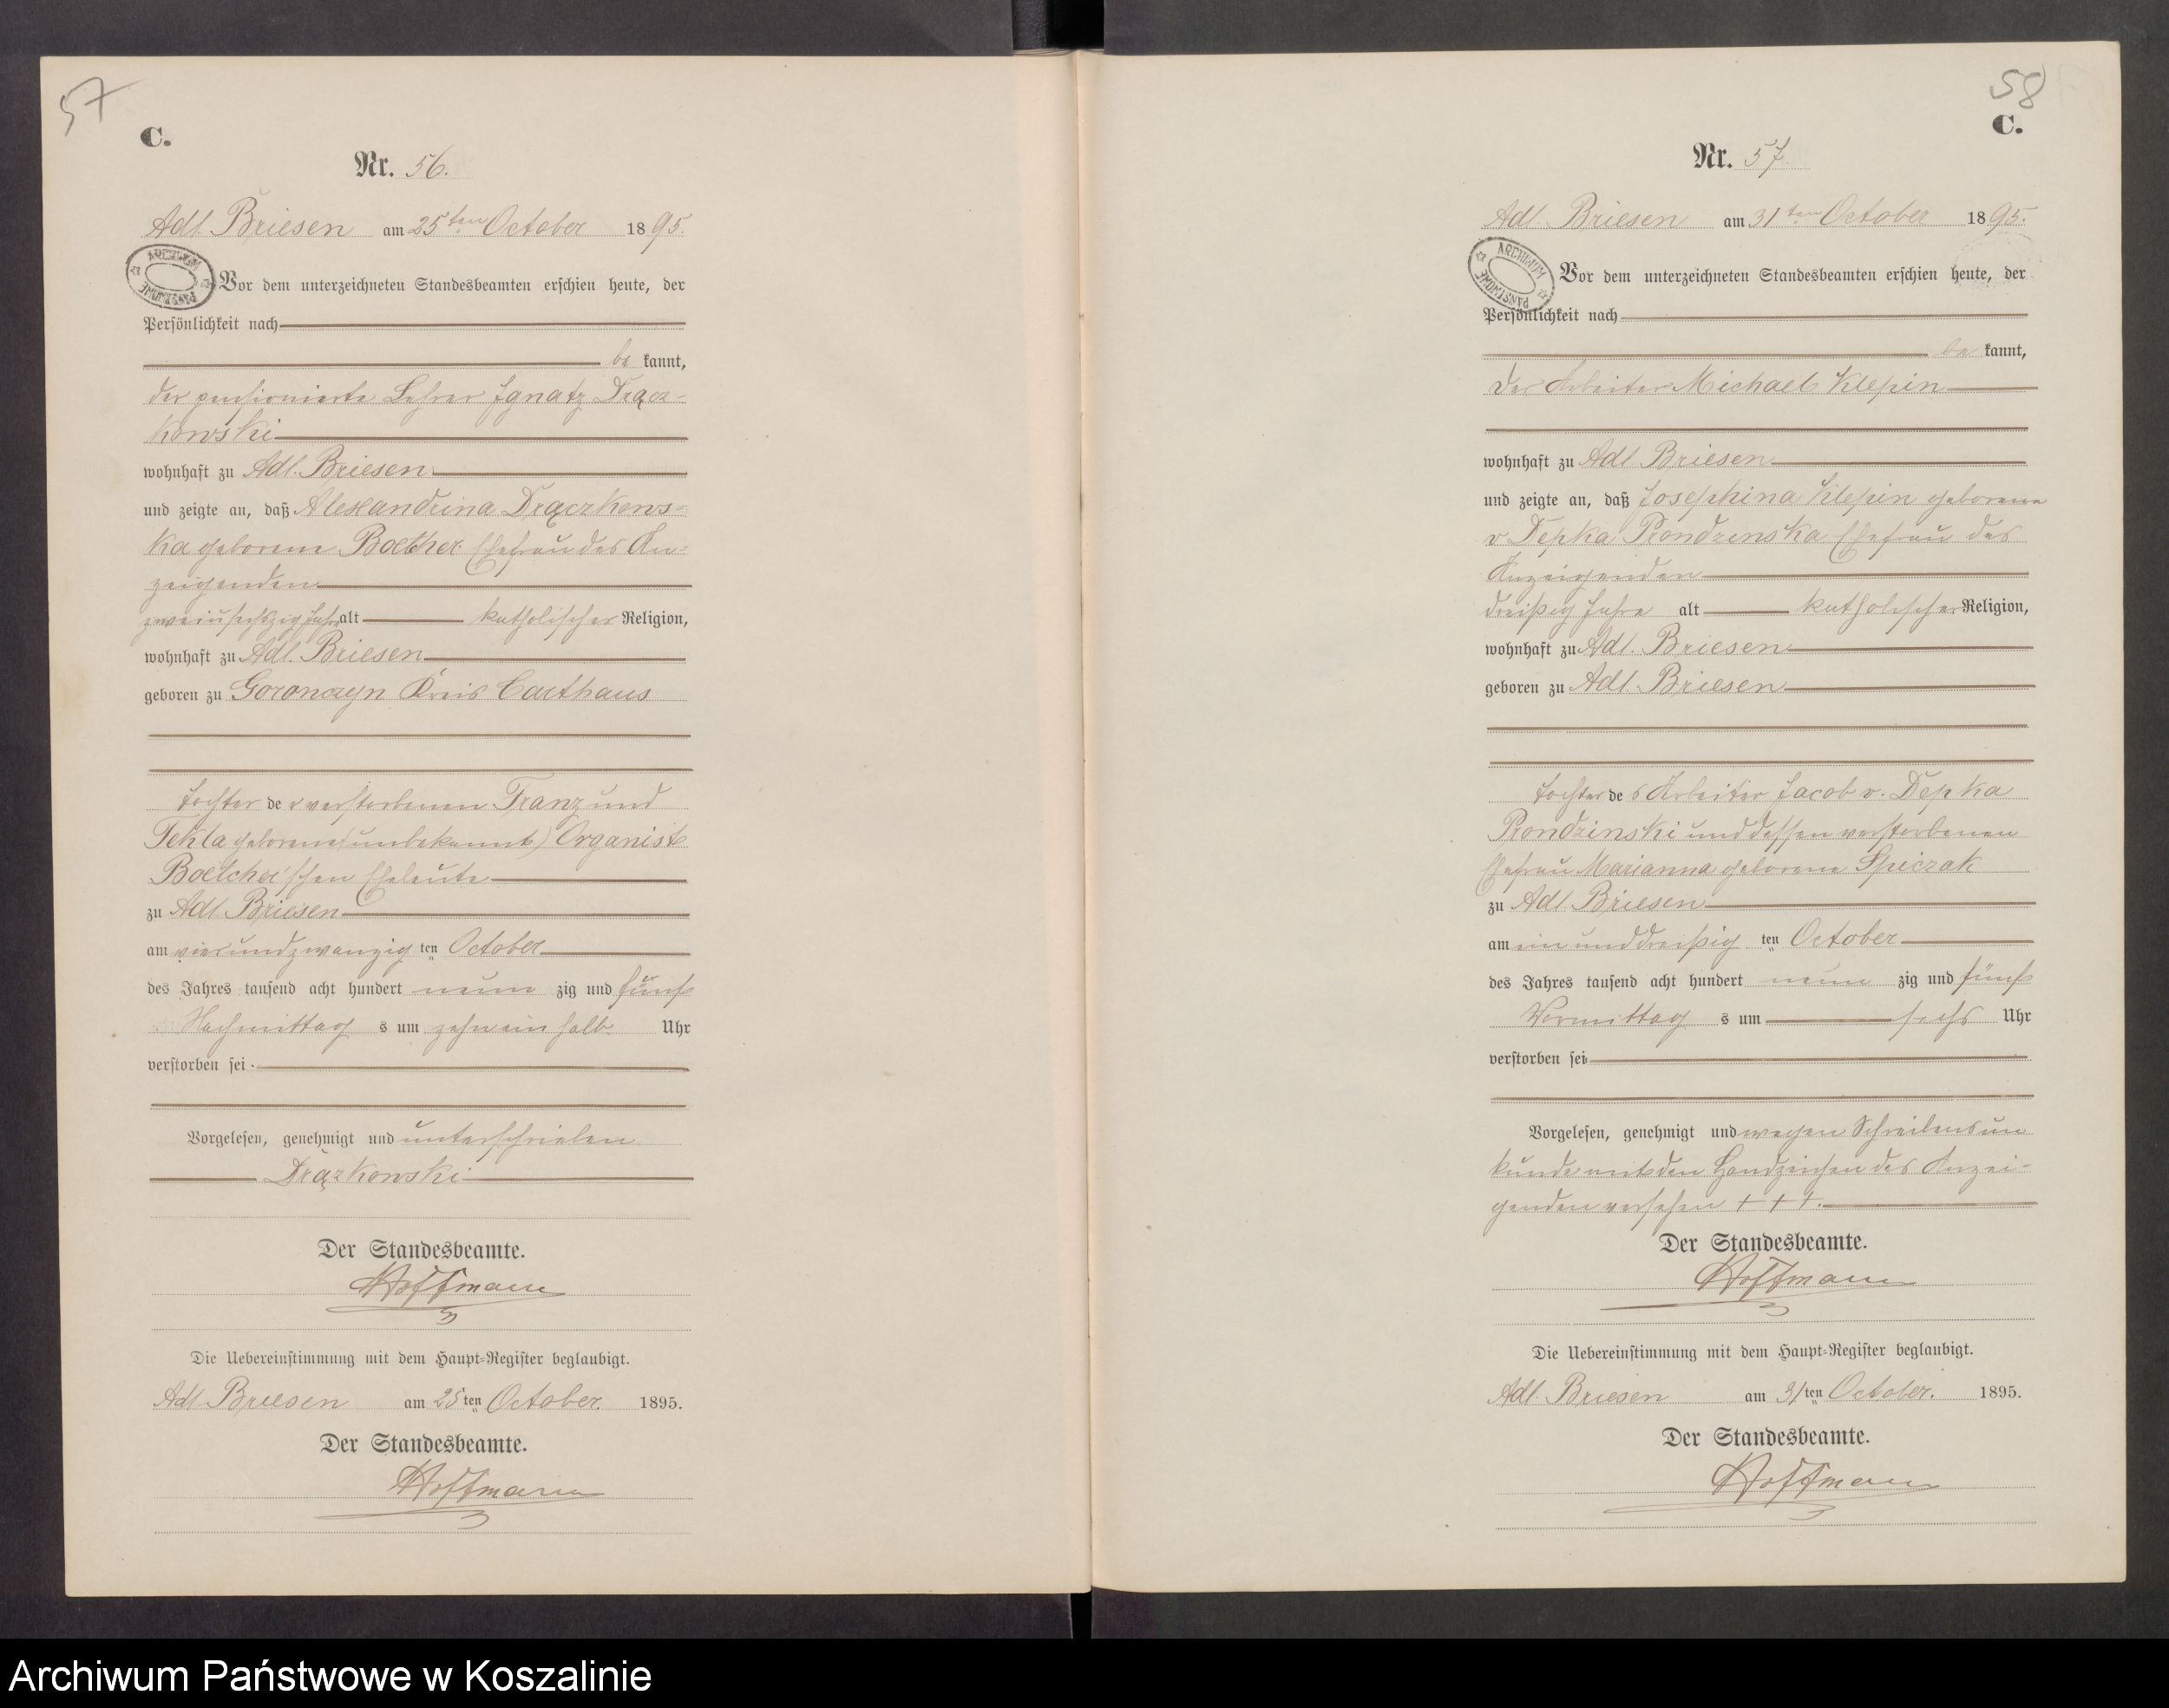 57
C.
Nr. 56.
Adl. Briesen am 25ten October 1895.
ARCHIWUM PAŃSTWOWE
Vor dem unterzeichneten Standesbeamten erschien heute, der
Persönlichkeit nach
be kannt,
der pensionierte Lehrer Ignatz Drącz-
kowski
wohnhaft zu Adl. Briesen
und zeigte an, daß Alexandrina Drączkows-
ka geborene Boetcher Ehefrau des An-
zeigenden
zweiundsechszig Jahre alt katholischer Religion,
wohnhaft zu Adl. Briesen
geboren zu Goronczyn Kreis Carthaus
Tochter der verstorbenen Franz und
Tekla geborene (unbekannt) Organist
Boetcher'schen Eheleute
zu Adl. Briesen
am vierundzwanzig ten October
des Jahres tausend acht hundert neun zig und fünf
Nachmittag s um zehn ein halb Uhr
verstorben sei
Vorgelesen, genehmigt und unterschrieben
Drązkowski
Der Standesbeamte.
Hoffmann
Die Uebereinstimmung mit dem Haupt-Register beglaubigt.
Adl. Briesen am 25ten October. 1895.
Der Standesbeamte.
Hoffmann
58
C.
Nr. 57.
Adl. Briesen am 31ten October 1895.
ARCHIWUM PAŃSTWOWE
Vor dem unterzeichneten Standesbeamten erschien heute, der
Persönlichkeit nach
be kannt,
der Arbeiter Michael Klepin
wohnhaft zu Adl Briesen
und zeigte an, daß Josephina Klepin geborene
v. Depka Prondzinska Ehefrau des
Anzeigenden
dreißig Jahre alt katholischer Religion,
wohnhaft zu Adl. Briesen
geboren zu Adl. Briesen
Tochter des Arbeiter Jacob v. Depka
Prondzinski und dessen verstorbenen
Ehefrau Marianna geborene Spiczak
zu Adl. Briesen
am ein und dreißig ten October
des Jahres tausend acht hundert neun zig und fünf
Vormittag s um sechs Uhr
verstorben sei
Vorgelesen, genehmigt und wegen Schreibensun
kunde mit den Handzeichen des Anzei-
genden versehen + + +.
Der Standesbeamte.
Hoffmann
Die Uebereinstimmung mit dem Haupt-Register beglaubigt.
Adl. Briesen am 31ten October. 1895.
Der Standesbeamte.
Hoffmann
Archiwum Państwowe w Koszalinie